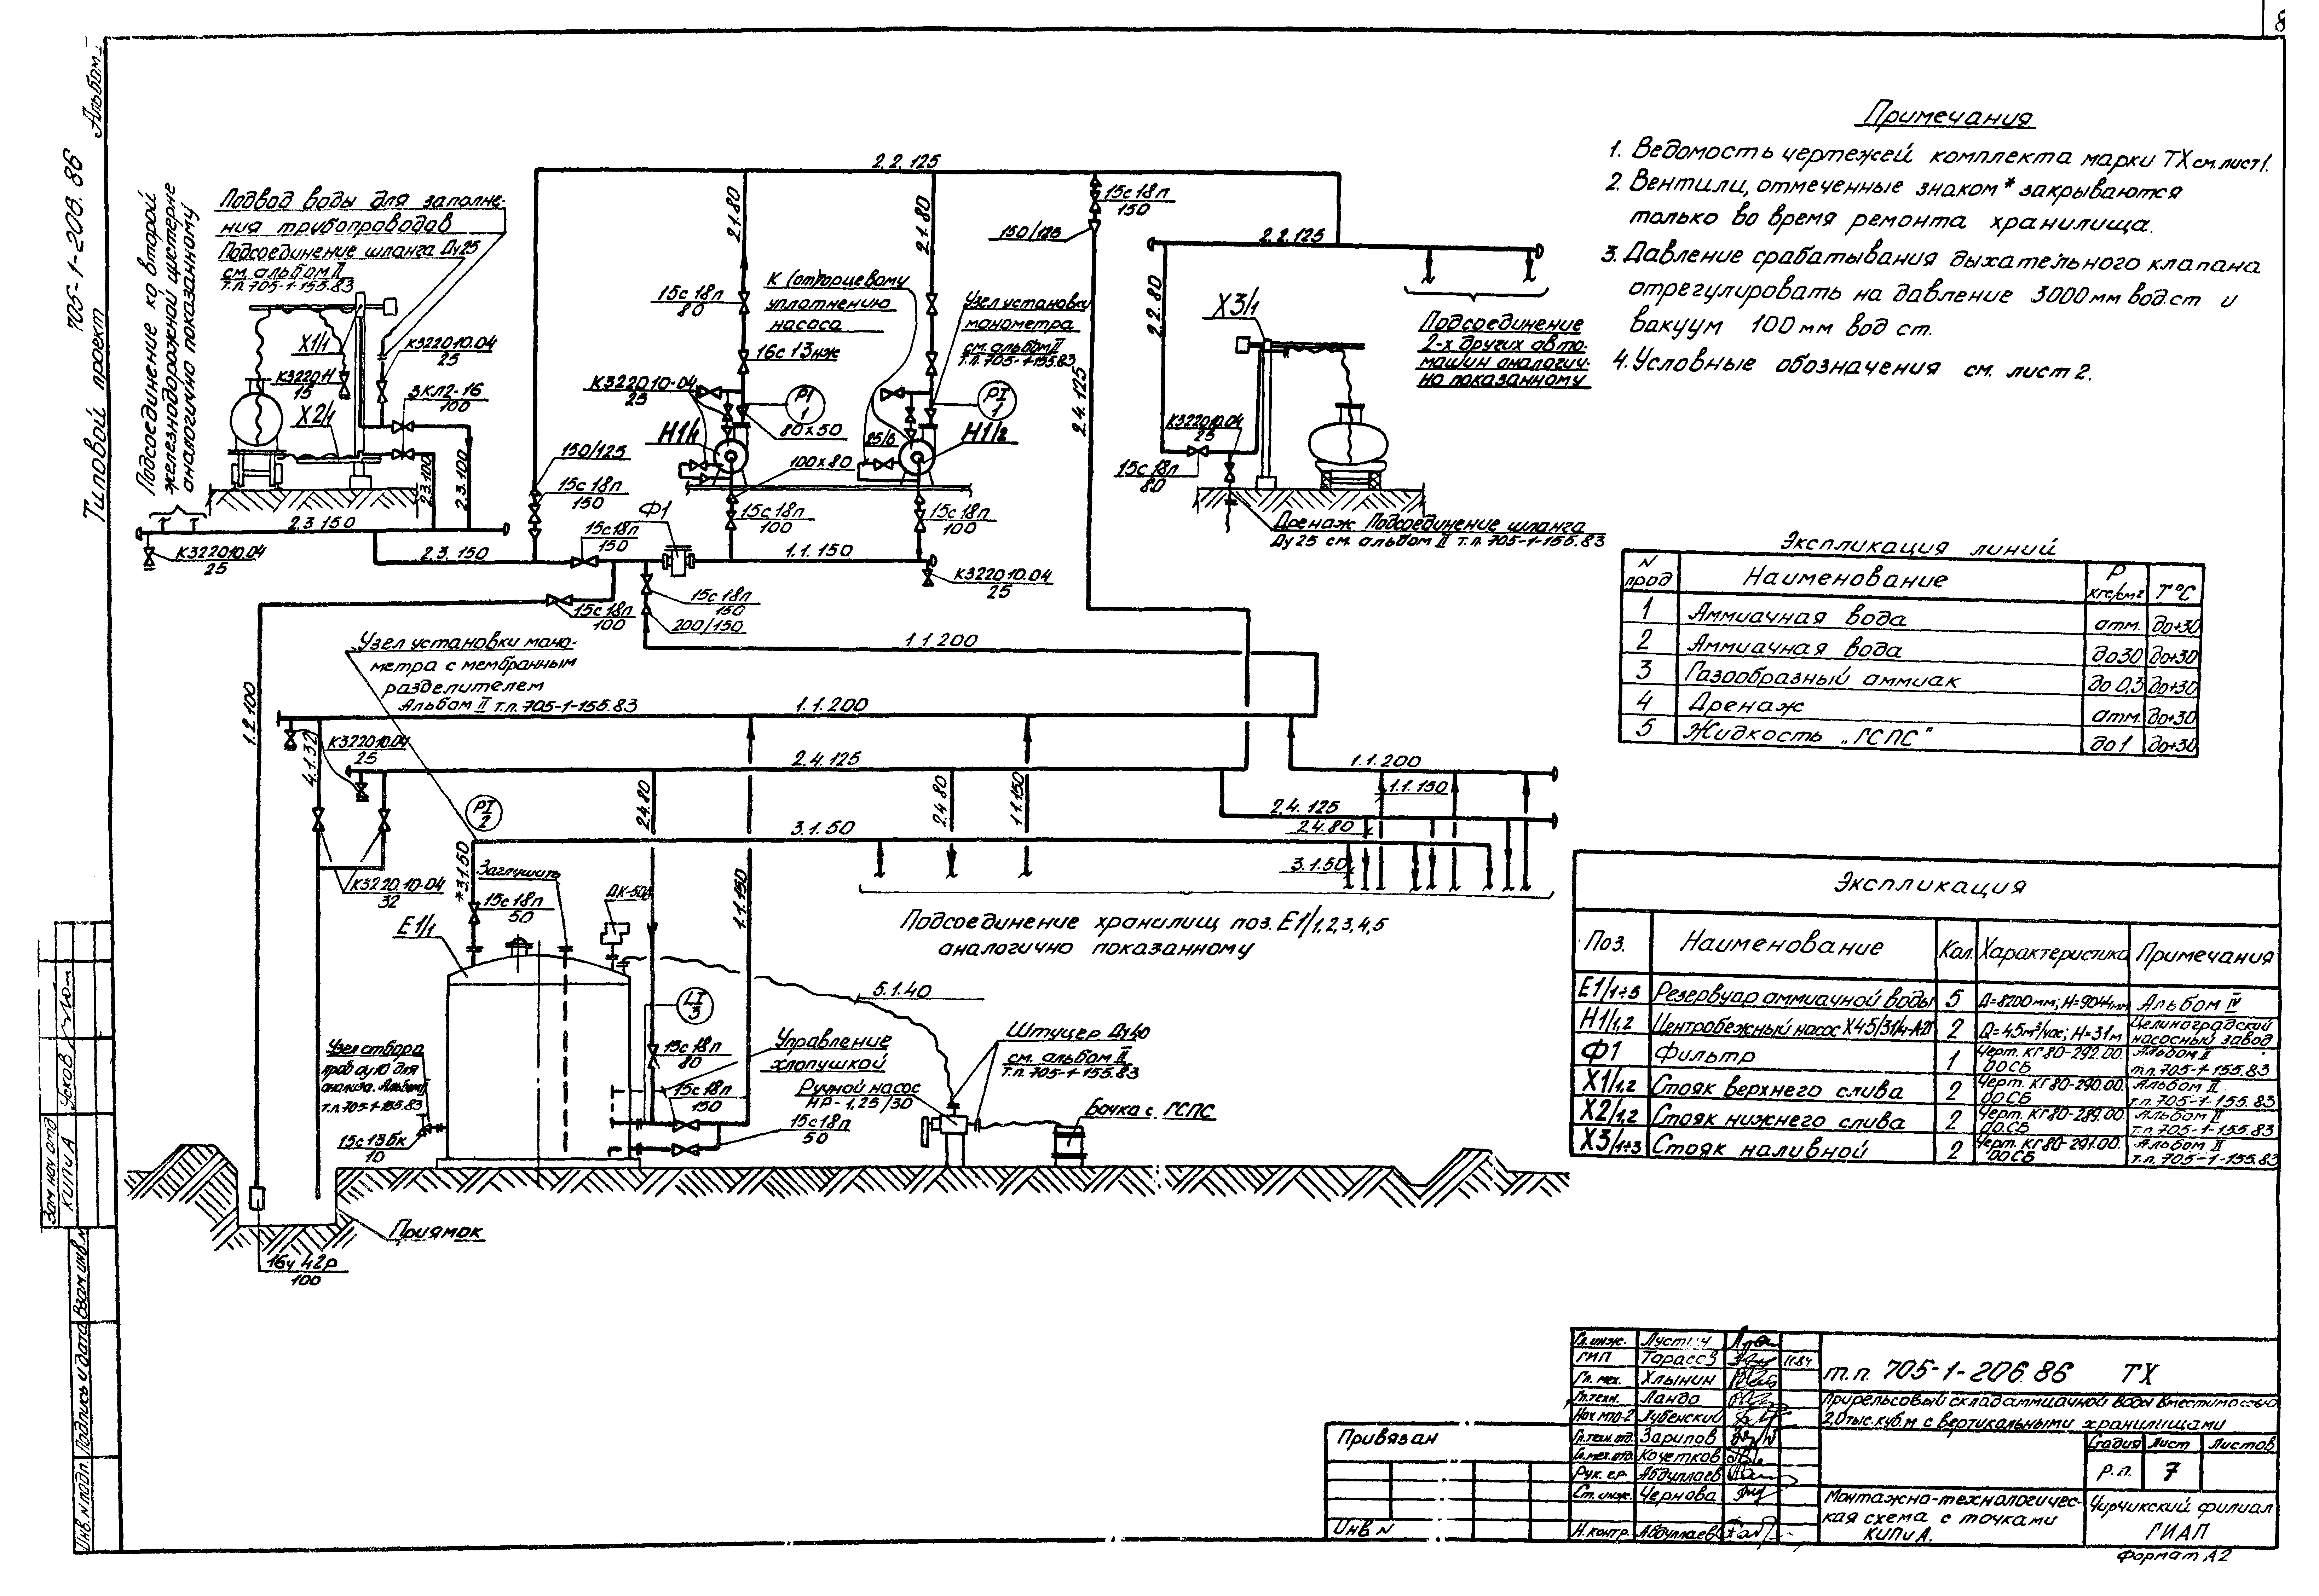 8
Типовой проект 705-1-206.86 Альбом
Подсоединение ко второй
железнодорожной цистерне
аналогично показанному
Подвод воды для заполне-
ния трубопроводов
Подсоединение шланга Ду25
см. альбом II
т.п. 705-1-155.83
Х1/1
К322010.04
25
15
3КЛ2-16
100
Х2/1
2.3.100
2.3.100
2.3.150
К322010.04
25
2.3.150
2.2.125
2.1.80
2.1.80
15с18п
80
К (от) торцевому
уплотнению
насоса
Узел установки
манометра
см. альбом II
т.п. 705-1-155.83
16с13нж
К322010-04
25
PI
1
PI
1
Н1/1
80х50
25/8
Н1/2
150/125
100х80
15с18п
150
Ф1
15с18п
100
15с18п
100
15с18п
150
1.1.150
К322010.04
25
15с18п
100
15с18п
150
200/150
1.1.200
15с18п
150
150/125
2.4.125
2.2.125
2.2.80
Х3/1
Подсоединение
2-х других авто-
машин аналогич-
но показанному
К322010.04
25
15с18п
80
Дренаж Подсоединение шланга
Ду 25 см. альбом II т.п. 705-1-155.83
Узел установки мано-
метра с мембранным
разделителем
Альбом II т.п. 705-1-155.83
1.2.100
1.1.200
К322010.04
25
4.1.32
2.4.125
PI
2
2.4.80
2.4.80
1.1.150
1.1.200
1.1.150
2.4.125
2.4.80
3.1.50
3.1.50
К322010-04
32
*3.1.50
Заглушить
15с18п
50
ДК-50А
1.1.150
Е1/1
Подсоединение хранилищ поз. Е1/1,2,3,4,5
аналогично показанному
5.1.40
LI
3
15с18п
80
Управление
хлопушкой
Штуцер Ду40
см. альбом II
т.п. 705-1-155.83
Узел отбора
проб ду10 для
анализа. Альбом II
т.п. 705-1-155.83
15с18п
150
Ручной насос
НР-1,25/30
Бочка с ГСПС
15с13бк
10
15с18п
50
Приямок
16ч42р
100
Примечания
1. Ведомость чертежей комплекта марки ТХ см. лист 1.
2. Вентили, отмеченные знаком * закрываются
только во время ремонта хранилища.
3. Давление срабатывания дыхательного клапана
отрегулировать на давление 3000мм вод.ст и
вакуум 100мм вод ст.
4. Условные обозначения см. лист 2.
Экспликация линий
N прод Наименование Р кгс/см² Т°С
1 Аммиачная вода атм. до+30
2 Аммиачная вода до30 до+30
3 Газообразный аммиак до 0,3 до+30
4 Дренаж атм. до+30
5 Жидкость „ГСПС" до1 до+30
Экспликация
Поз. Наименование Кол. Характеристика Примечания
Е1/1÷5 Резервуар аммиачной воды 5 Д=8200мм; Н=9044мм Альбом IV
Н1/1,2 Центробежный насос Х45/31 2 Q=45м³/час; Н=31м Целиноградский насосный завод
Ф1 Фильтр 1 Черт. КГ80-292.00.00СБ Альбом II т.п. 705-1-155.83
Х1/1,2 Стояк верхнего слива 2 Черт. КГ80-290.00.00СБ Альбом II т.п. 705-1-155.83
Х2/1,2 Стояк нижнего слива 2 Черт. КГ80-289.00.00СБ Альбом II т.п. 705-1-155.83
Х3/1÷3 Стояк наливной 2 Черт. КГ80-291.00.00СБ Альбом II т.п. 705-1-155.83
Зам нач отд
КИПиА Усков
Инв. N подл. Подпись и дата Взам. инв. N
Привязан
Инв N
Гл. инж. Лустин
ГИП Тарасов 11.84
Гл. мех. Хлынин
Гл. техн. Ландо
Нач мто-2 Лубенский
Гл. техн. отд. Зарипов
Гл. мех. отд. Кочетков
Рук. гр. Абдуллаев
Ст. инж. Чернова
Н. контр. Абдуллаев
т.п. 705-1-206.86 ТХ
Прирельсовый склад аммиачной воды вместимостью
2,0 тыс. куб. м. с вертикальными хранилищами
Стадия Лист Листов
Р.п. 7
Монтажно-технологичес-
кая схема с точками
КИПиА.
Чирчикский филиал
ГИАП
Формат А2